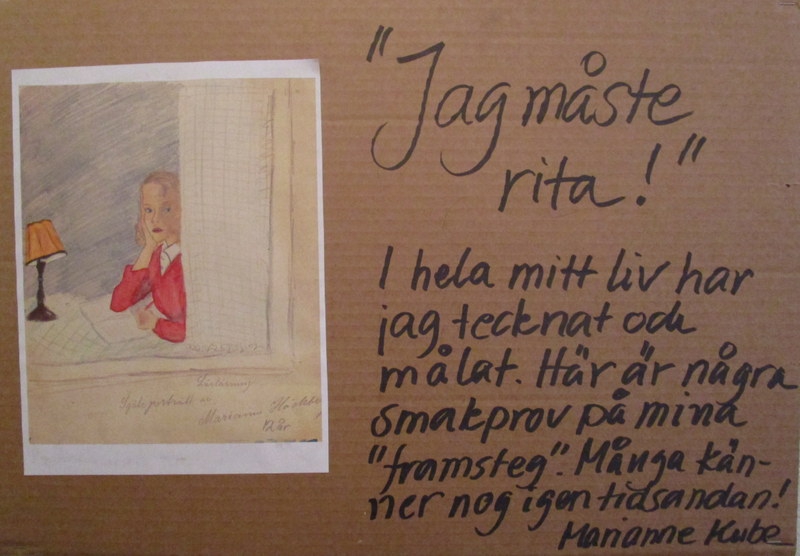 "Jag måste
rita!"
I hela mitt liv har
jag tecknat och
målat. Här är några
smakprov på mina
"framsteg". Många kän-
ner nog igen tidsandan!
Marianne Kube
Självporträtt
Mariann
12 år